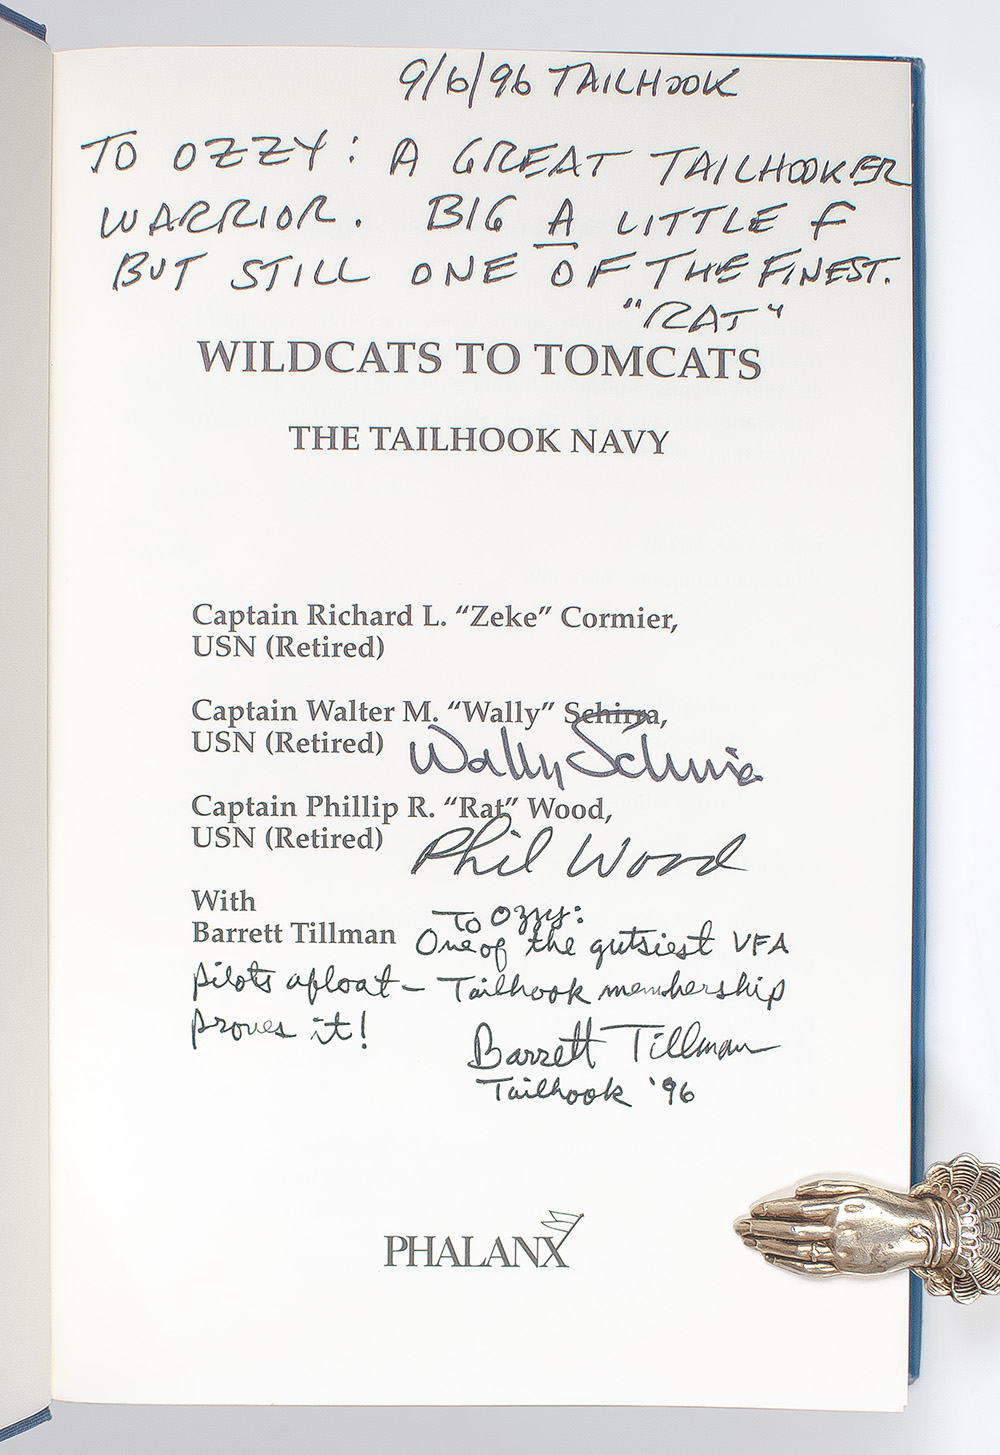 9/6/96 TAILHOOK
TO OZZY: A GREAT TAILHOOKER
WARRIOR. BIG A LITTLE F
BUT STILL ONE OF THE FINEST.
"RAT"
WILDCATS TO TOMCATS
THE TAILHOOK NAVY
Captain Richard L. "Zeke" Cormier,
USN (Retired)
Captain Walter M. "Wally" Schirra,
USN (Retired) Wally Schirra
Captain Phillip R. "Rat" Wood,
USN (Retired) Phil Wood
With
To Ozzy:
Barrett Tillman One of the gutsiest VFA
pilots afloat – Tailhook membership
proves it!
Barrett Tillman
Tailhook '96
PHALANX